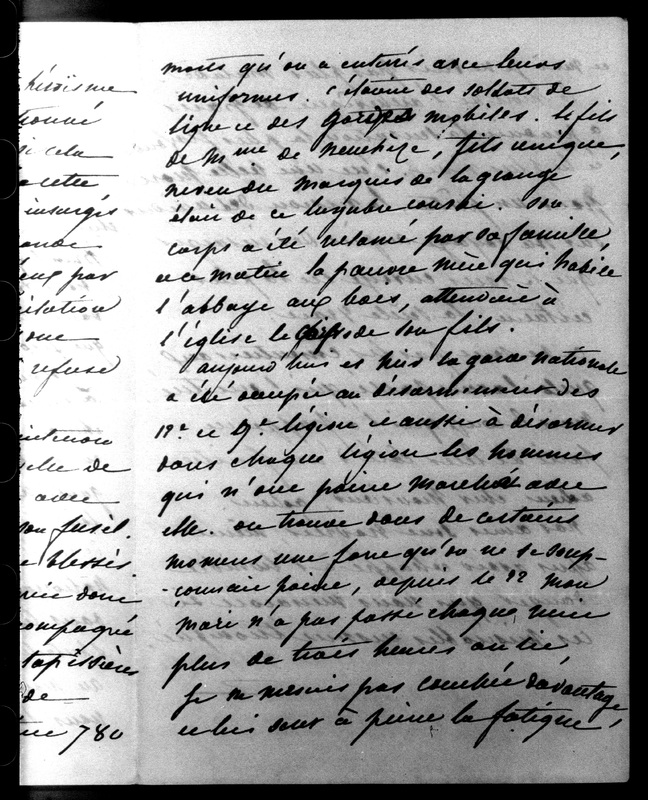 héroïsme
trouvé
si cela
cette
insurgés
par
refuse
de
avec
son fusil.
blessés.
donc
compagné
tapissière
de
780
morts qu'on a enterrés avec leurs
uniformes. c'étaient des soldats de
ligne et des gardes mobiles. le fils
de Mme de neuchèze, fils unique,
neveu du marquis de la grange
était de ce lugubre convoi. son
corps a été réclamé par sa famille
et ce matin la pauvre mère qui habite
l'abbaye aux bois, attendait à
l'église le corps de son fils.
aujourd'hui et hier la garde nationale
a été occupée au désarmement des
12e et 9e légion et aussi à désarmer
dans chaque légion les hommes
qui n'ont point marché avec
elle. on trouve dans de certains
momens une force qu'on ne se soup-
-connait point, depuis le 22 mon
mari n'a pas passé chaque nuit
plus de trois heures au lit,
je ne me suis pas couchée davantage
et lui sent à peine la fatigue,